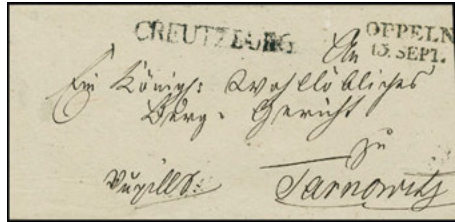 CREUTZBURG
OPPELN
13. SEPT.
An
Ein Königl: Wohllöbliches
Berg-Gericht
zu
Tarnowitz